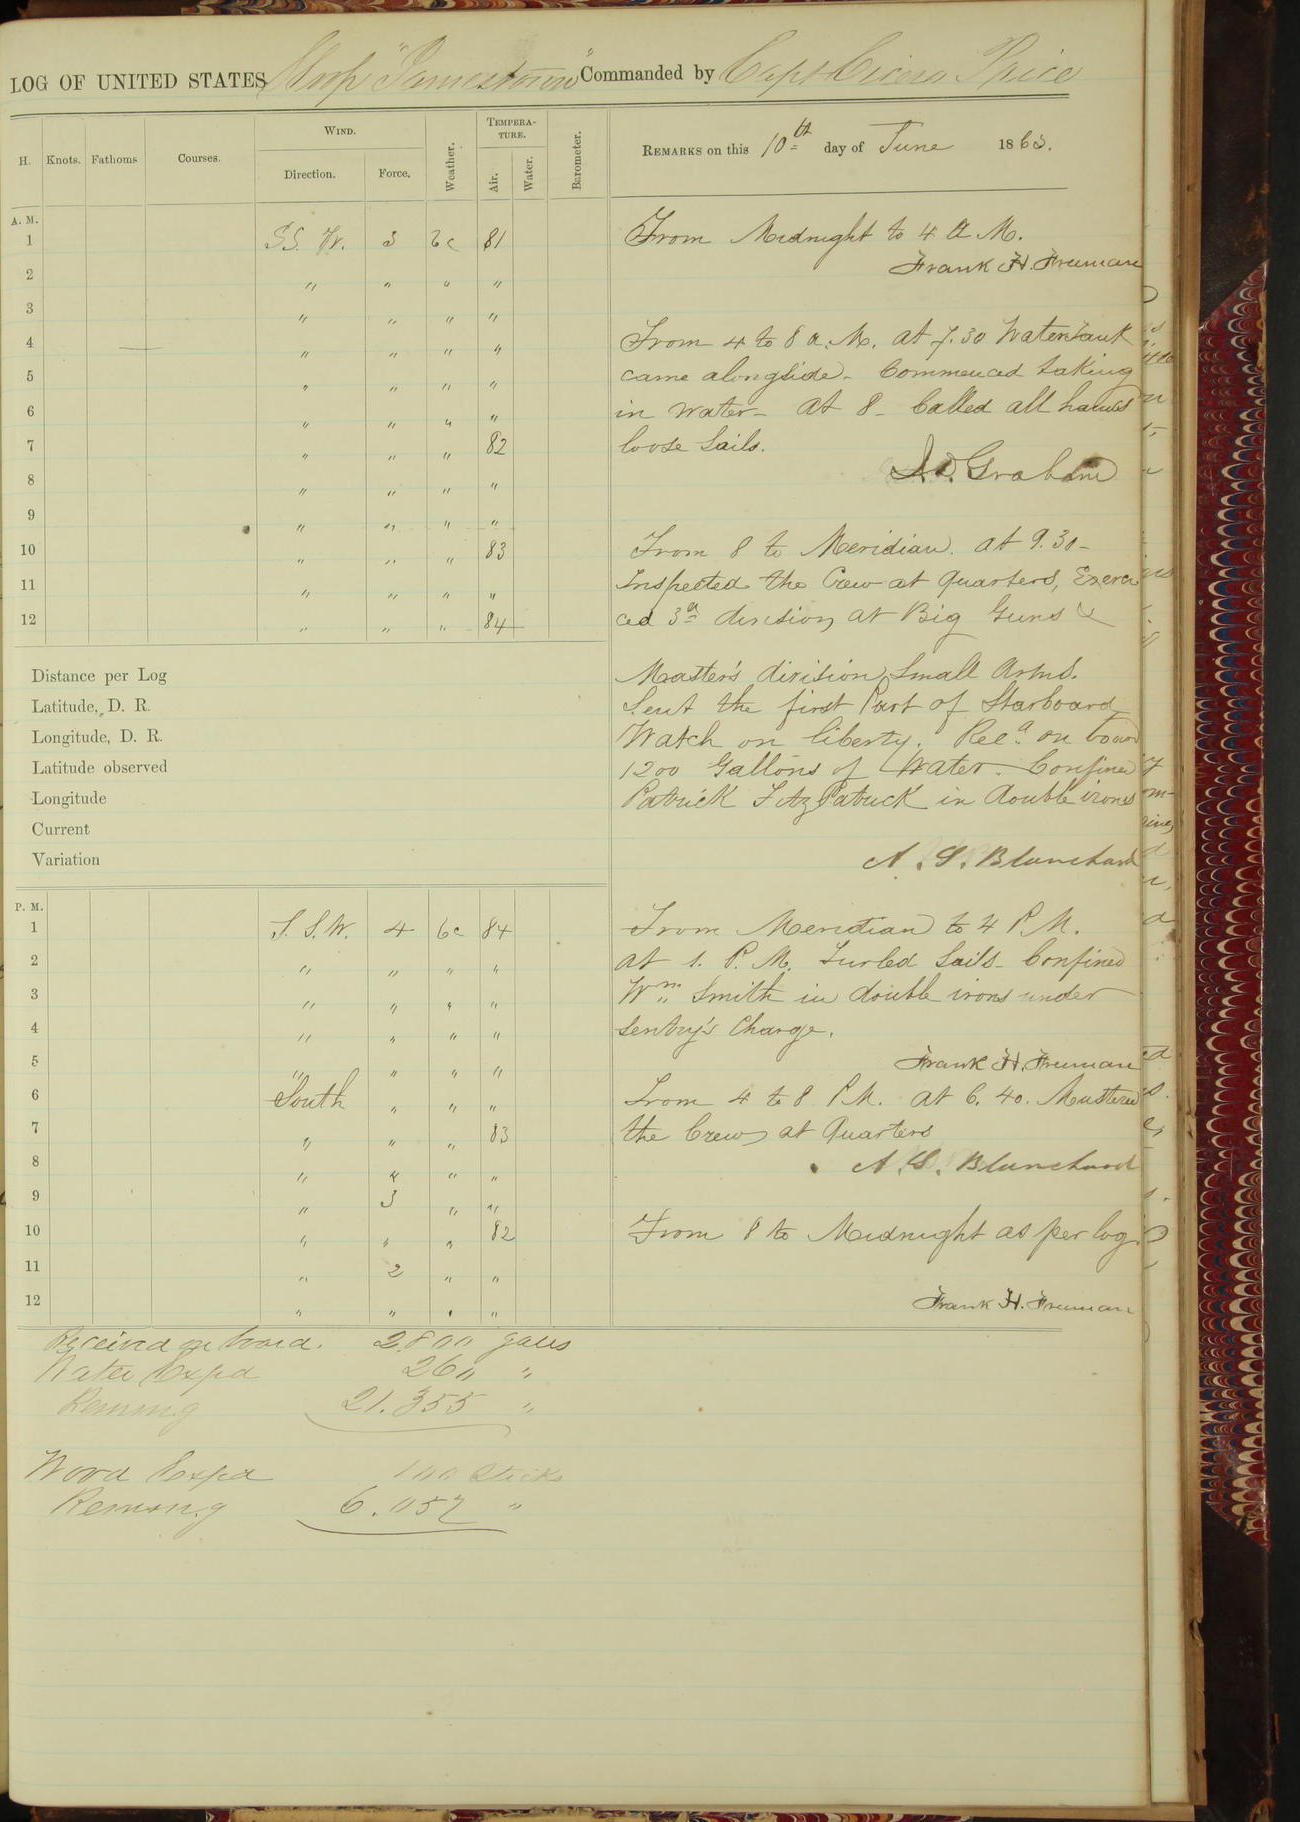 LOG OF UNITED STATES Sloop "Jamestown" Commanded by Capt Cicero Price
H. Knots. Fathoms Courses. WIND. Direction. Force. Weather. TEMPERATURE. Air. Water. Barometer.
REMARKS on this 10th day of June 1863.
A. M.
1 S.S. W. 3 bc 81
2 " " " "
3 " " " "
4 " " " "
5 " " " "
6 " " " "
7 " " " 82
8 " " " "
9 " " " "
10 " " " 83
11 " " " "
12 " " " 84
Distance per Log
Latitude, D. R.
Longitude, D. R.
Latitude observed
Longitude
Current
Variation
P. M.
1 S. S.W. 4 bc 84
2 " " " "
3 " " " "
4 " " " "
5 " " " "
6 South " " "
7 " " " 83
8 " 4 " "
9 " 3 " "
10 " " " 82
11 " 2 " "
12 " " " "
From Midnight to 4 A M.
Frank H. Freeman
From 4 to 8 A. M. at 7.30 Watertank
came alongside - Commenced taking
in water - at 8 - Called all hands
loose Sails.
Graham
From 8 to Meridian. at 9.30 -
Inspected the Crew at quarters, Exerci
ced 3d division at Big Guns &
Master's division, Small Arms.
Sent the first Part of Starboard
Watch on liberty. Recd on board
1200 Gallons of Water. Confined
Patrick FitzPatrick in double irons
A. S. Blanchard
From Meridian to 4 P M.
at 1. P. M. Furled Sails - Confined
Wm Smith in double irons under
Sentry's Charge.
Frank H. Freeman
From 4 to 8 P M. at 6. 40. Mustered
the Crew at Quarters
A. S. Blanchard
From 8 to Midnight as per log.
Frank H. Freeman
Received on board. 2.800 galls
Water Expd 260 "
Remng 21.355 "
Wood Expd 100 Sticks
Remng 6.057 "